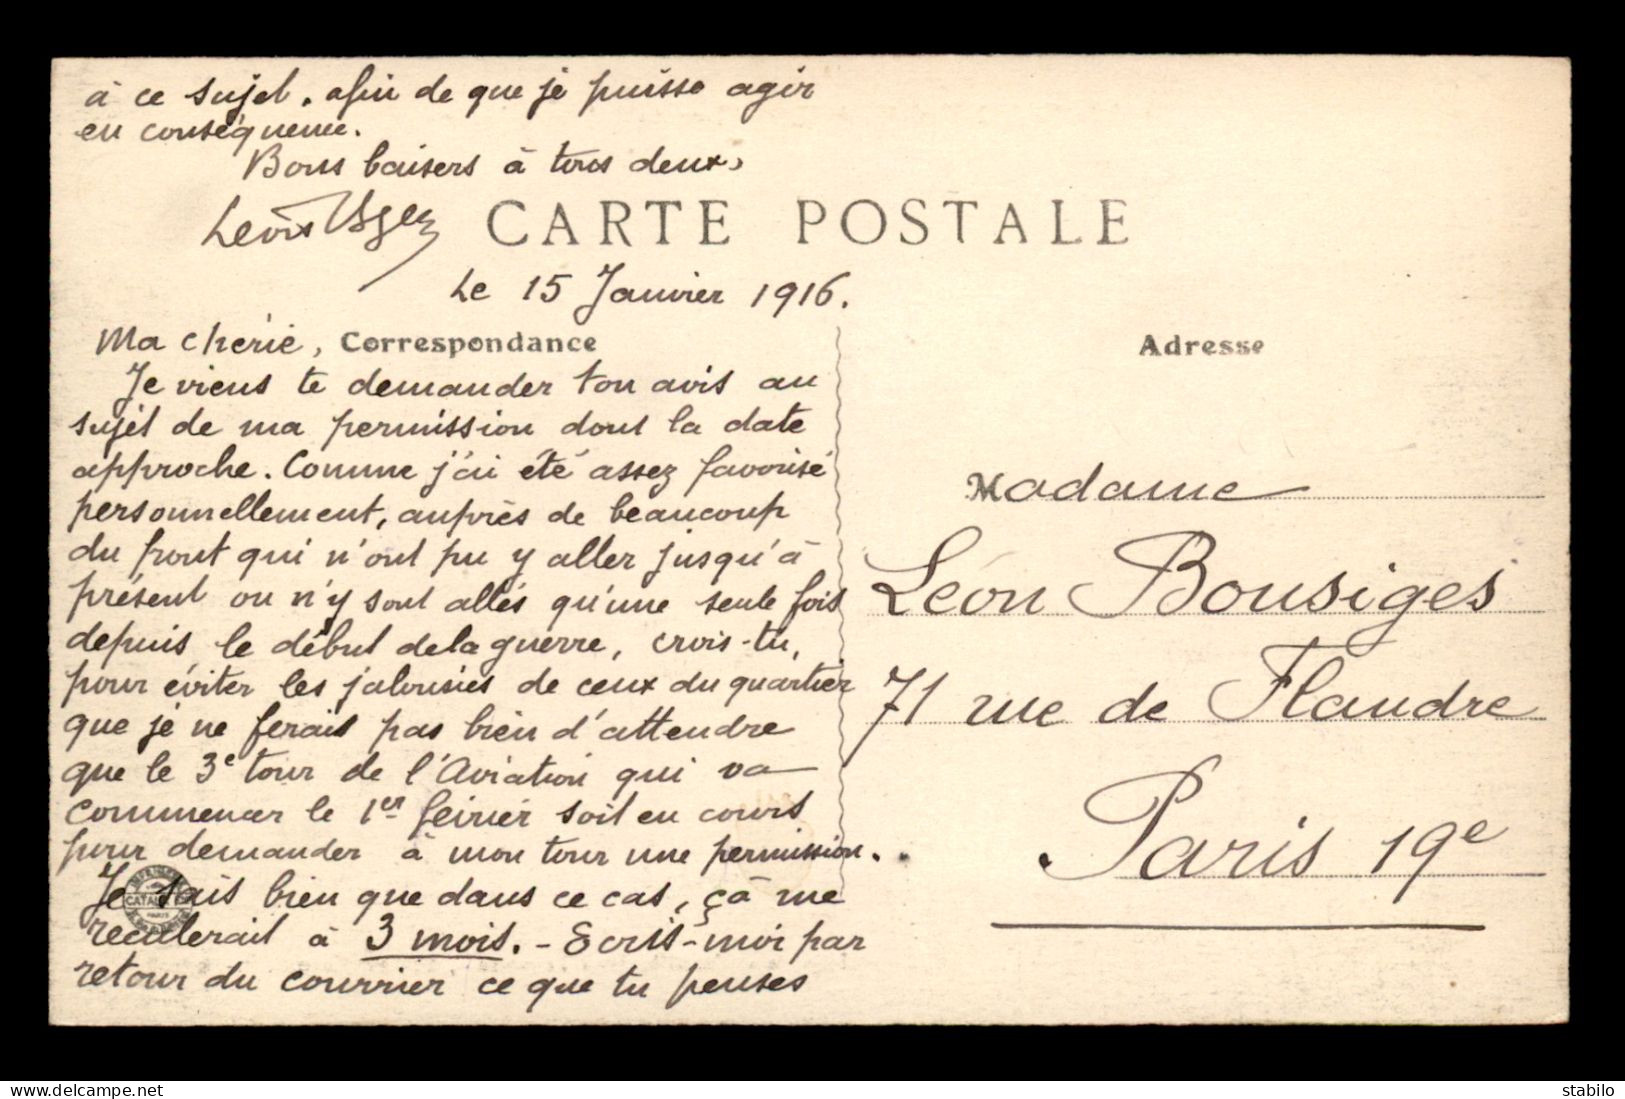 à ce sujet. afin de que je puisse agir
en conséquence.
Bons baisers à tous deux,
Léon
CARTE POSTALE
Le 15 Janvier 1916.
Ma chérie, Correspondance
Je viens te demander ton avis au
sujet de ma permission dont la date
approche. Comme j'ai été assez favorisé
personnellement, auprès de beaucoup
du front qui n'ont pu y aller jusqu'à
présent ou n'y sont allés qu'une seule fois
depuis le début de la guerre, crois-tu,
pour éviter les jalousies de ceux du quartier
que je ne ferais pas bien d'attendre
que le 3e tour de l'Aviation qui va
commencer le 1er février soit en cours
pour demander à mon tour une permission.
Je sais bien que dans ce cas, çà me
reculerait à 3 mois. - Ecris-moi par
retour du courrier ce que tu penses
Adresse
Madame
Léon Bousiges
71 rue de Flandre
Paris 19e
CATALA
PARIS
stabilo